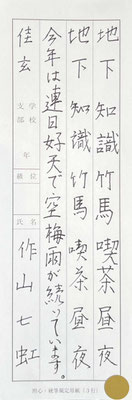 地下 知識 竹馬 喫茶 昼夜
地下 知識 竹馬 喫茶 昼夜
今年は連日好天で空梅雨が続いています。
学校
支部
年
級位
氏名
佳玄 作山七虹
硬筆規定用紙（3行）